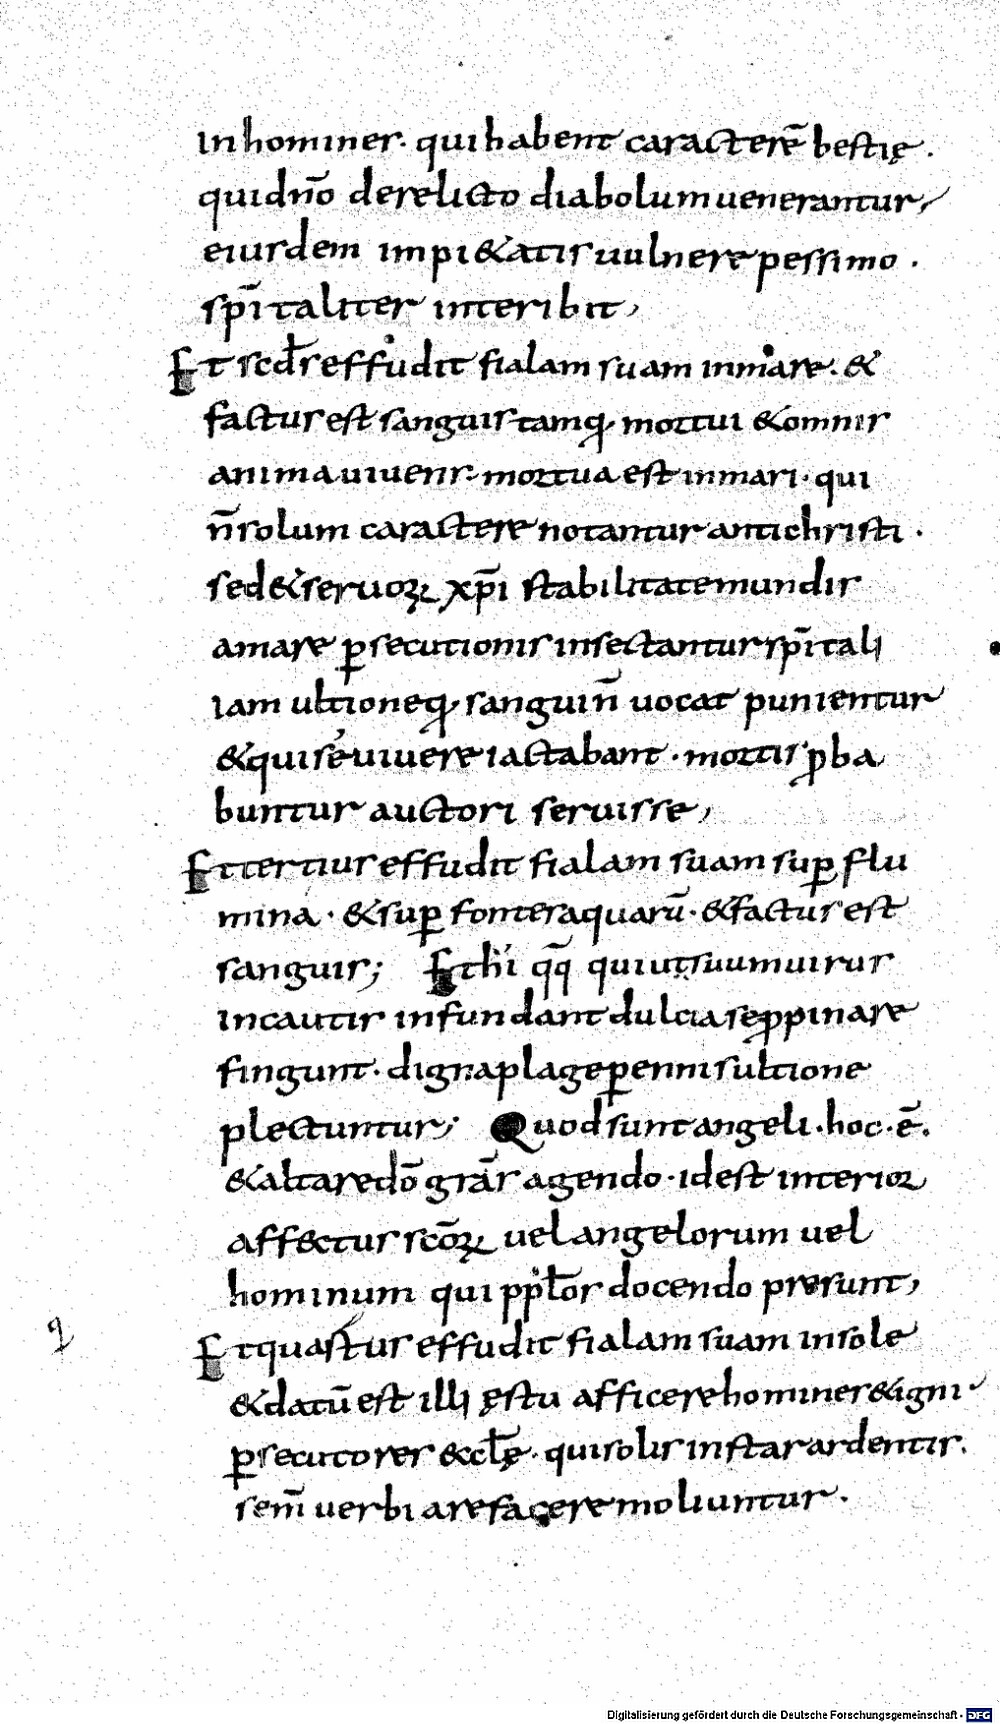 In homines. qui habent caracterē bestię.
qui dn̄o derelicto diabolum uenerantur,
eiusdem impi&atis uulnere pessimo.
sp̄italiter interibit,
Et scd̄s effudit fialam suam in mare. &
factus est sanguis tamq; mortui & omnis
anima uiuens mortua est in mari. qui
n̄ solum caractere notantur antichristi.
sed & seruoꝝ xp̄i stabilitate mundis
amare ꝑsecutionis insectantur sp̄itali
iam ultioneq; sanguin̄ uocat punientur
& qui se uiuere iactabant. mortis ꝓba
buntur auctori seruisse,
Et tertius effudit fialam suam suꝑ flu
mina. & suꝑ fontes aquarū. & factus est
sanguis; Et hi qq̄ qui ut suum uirus
incautis infundant dulcia se ꝓpinare
fingunt. digna plage ꝑennis ultione
plectuntur; Quod sunt angeli. hoc. ē.
& altare dō grās agendo. id est interior
aff&ctus scōꝝ uel angelorum uel
hominum qui pp̄ls docendo presunt,
Et quartus effudit fialam suam in sole
& datū est illi ęstu afficere homines & igni
ꝑsecutores &cl̄ę. qui solis instar ardentis.
sem̄ uerbi arefacere moliuntur.
Digitalisierung gefördert durch die Deutsche Forschungsgemeinschaft - DFG